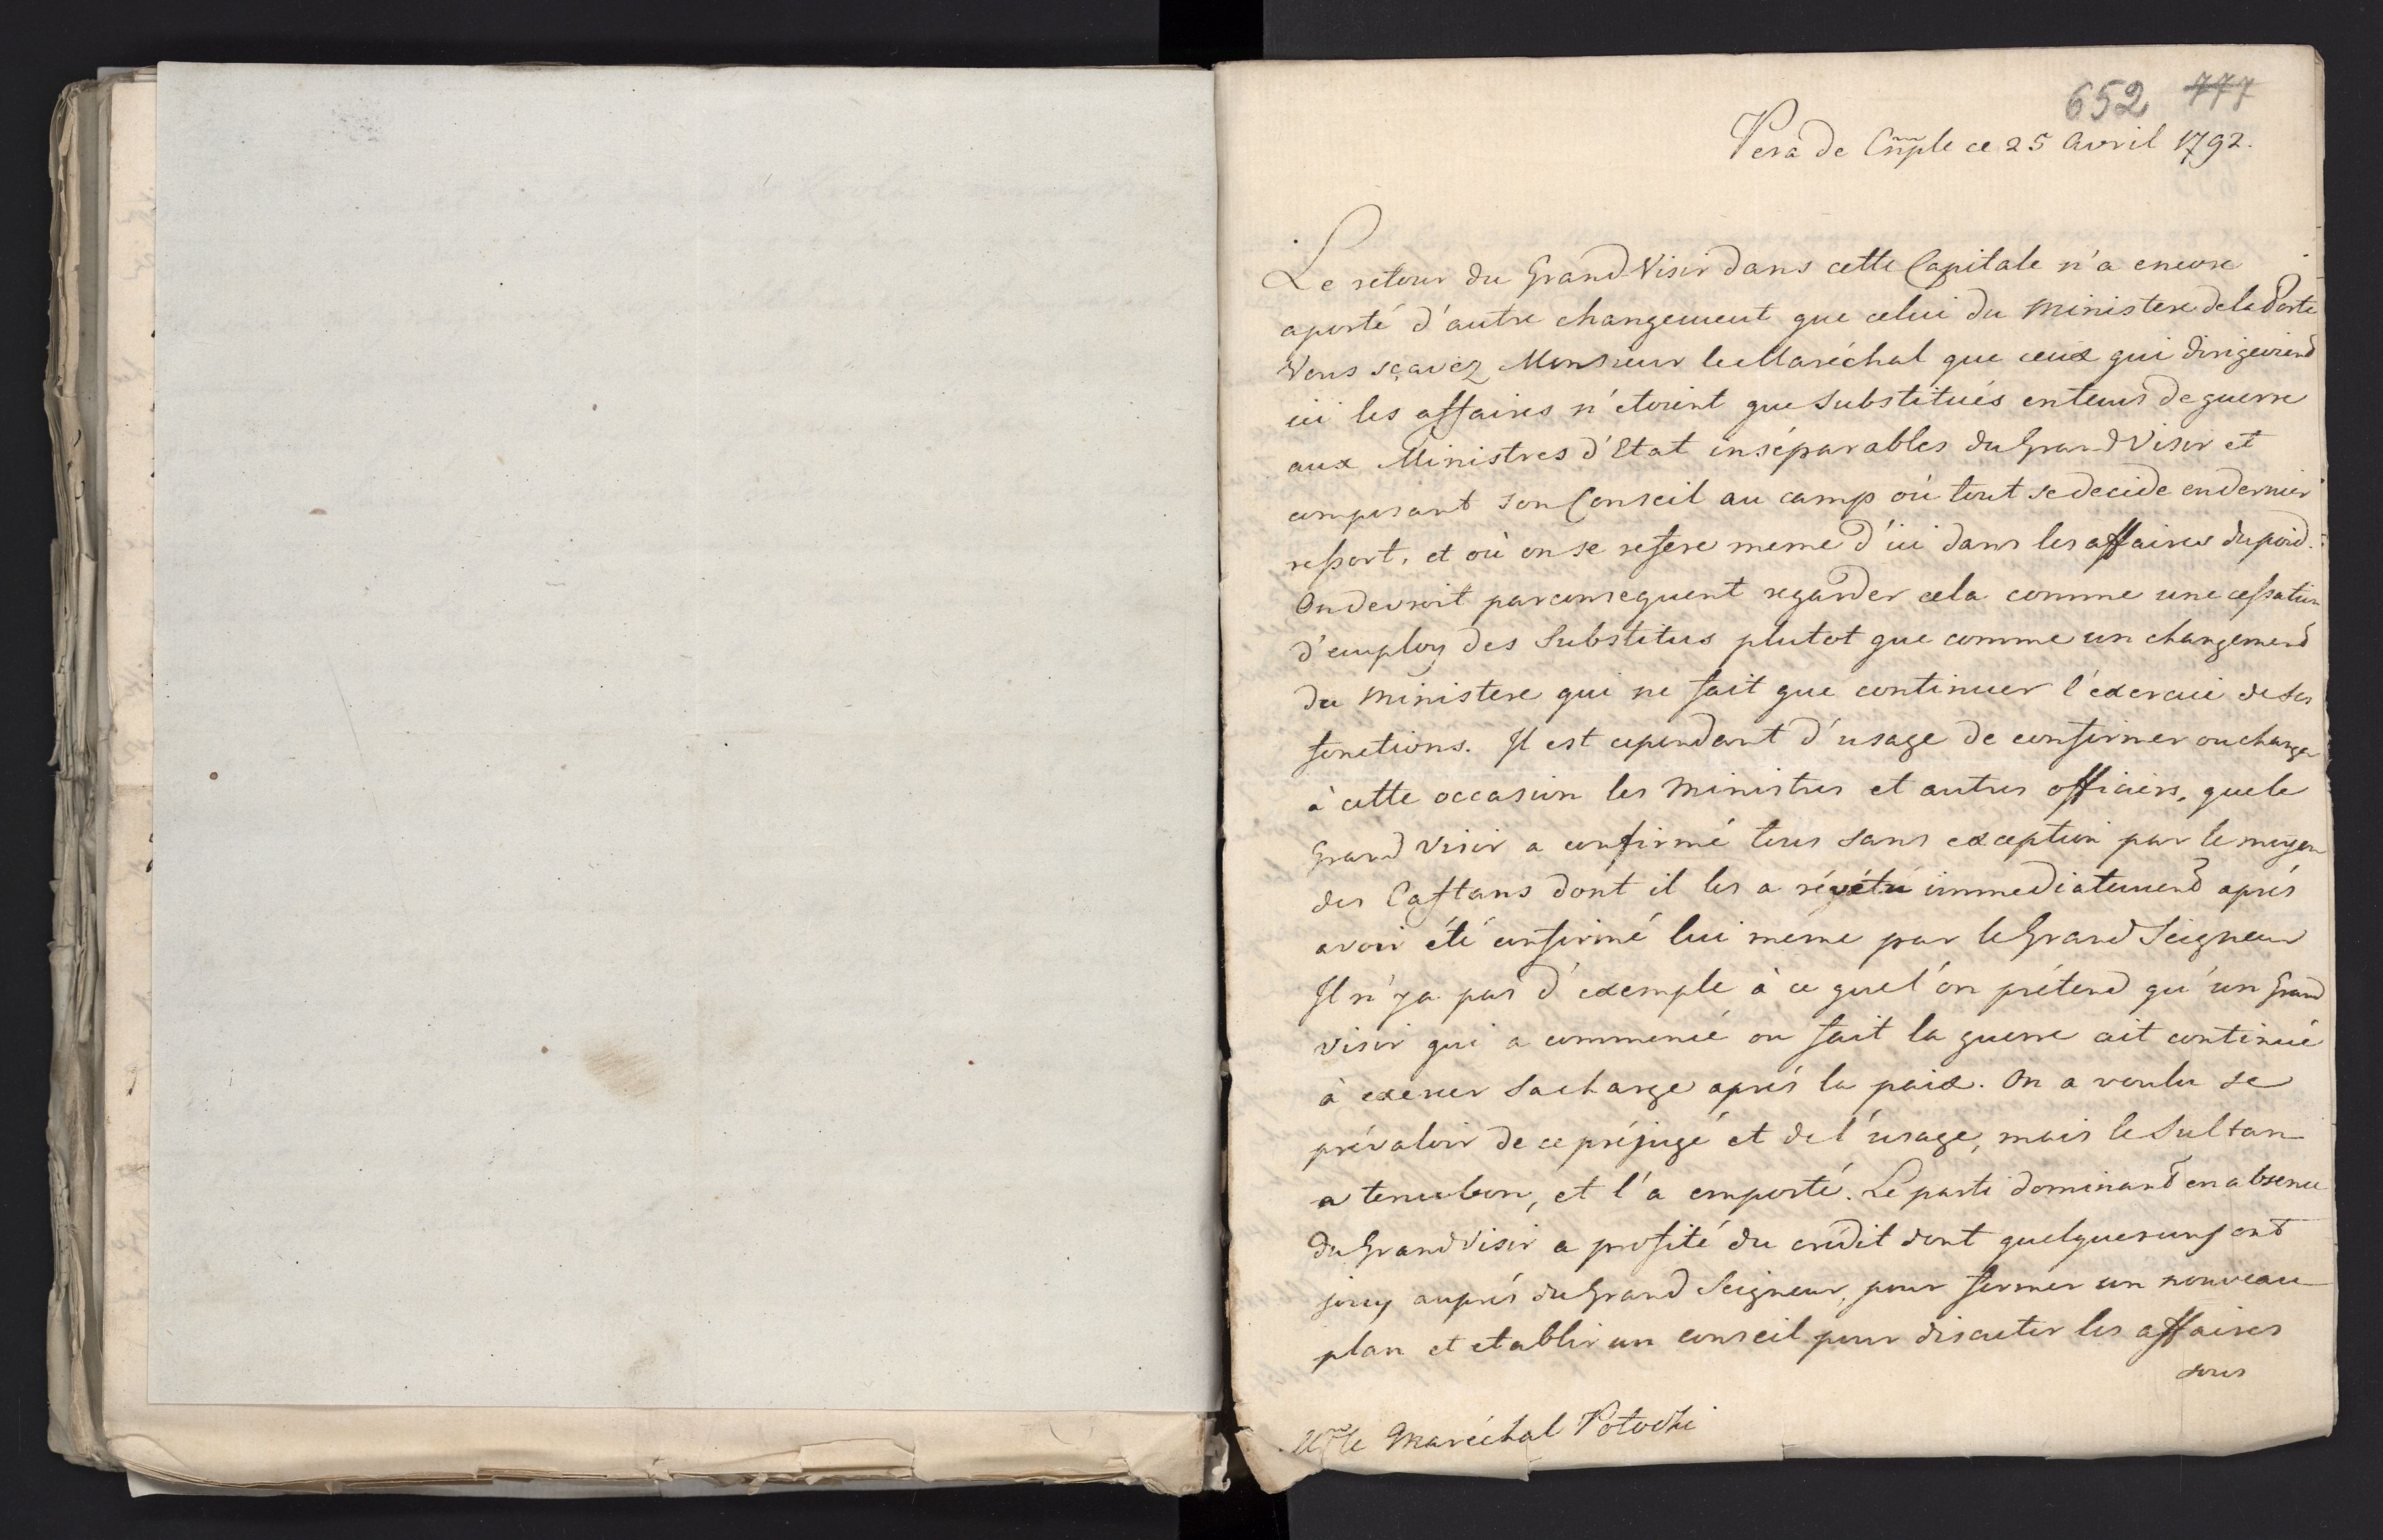 652 777
Pera de Cnple ce 25 Avril 1792.
Le retour du Grand Visir dans cette Capitale n'a encore
aporté d'autre changement que celui du Ministere de la Porte
Vous sçavez Monsieur le Maréchal que ceux qui dirigeoient
ici les affaires n'etoient que Substitués en tems de guerre
aux Ministres d'Etat inséparables du Grand Visir et
composant son Conseil au camp où tout se decide en dernier
ressort, et où on se refere meme d'ici dans les affaires du poid.
On devroit par consequent regarder cela comme une cessation
d'employ des Substitus plutot que comme un changement
du Ministere qui ne fait que continuer l'exercice de ses
fonctions. Il est cependant d'usage de confirmer ou changer
à cette occasion les Ministres et autres officiers, que le
Grand Visir a confirmé tous sans exception par le moyen
des Caftans dont il les a révétu immediatement aprés
avoir été confirmé lui meme par le Grand Seigneur
Il n'y a pas d'exemple à ce que l'on prétend qu'un Grand
Visir qui a commencé ou fait la guerre ait continué
à exercer sa charge aprés la paix. On a voulu se
prévaloir de ce préjugé et de l'usage, mais le Sultan
a tenu bon, et l'a emporté. Le parti dominant en absence
du Grand Visir a profité du crédit dont quelques uns ont
jouy auprés du Grand Seigneur, pour former un nouveau
plan et etablir un conseil pour discuter les affaires
sous
Mr le Maréchal Potocki